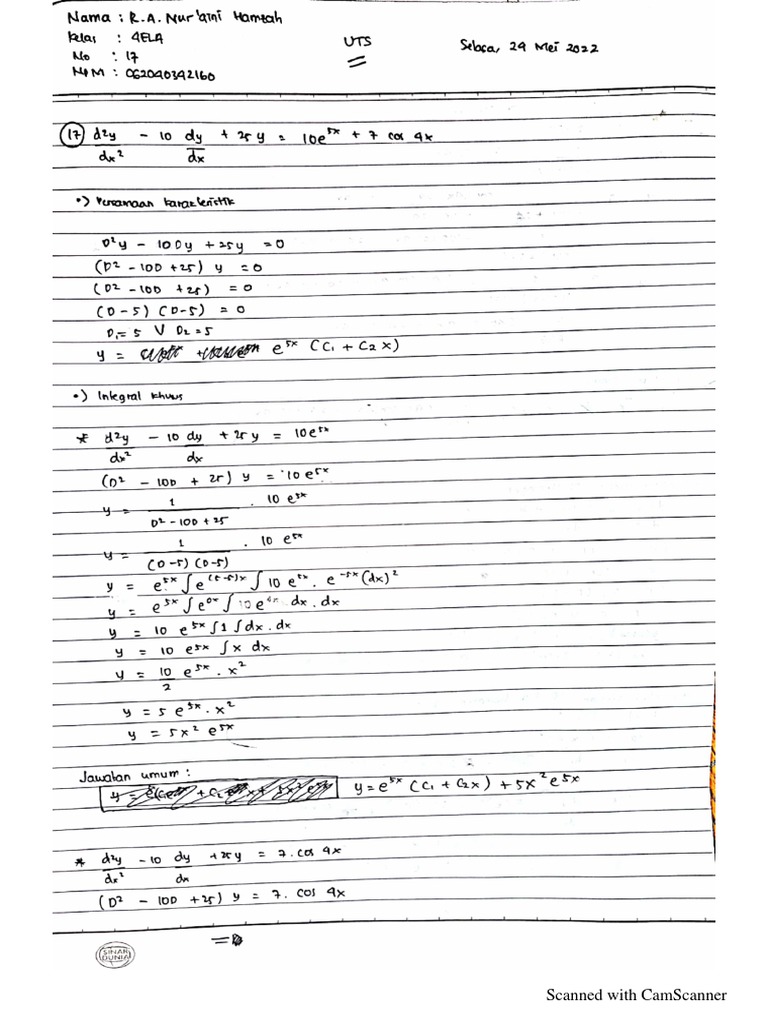 Nama : R.A. Nur'aini Hamzah
Kelas : 4ELA
UTS
Selasa, 24 Mei 2022
No : 17
NIM : 062040342160
(17) d²y/dx² - 10 dy/dx + 25 y = 10e^5x + 7 cos 4x
•) Persamaan karakteristik
D²y - 10Dy + 25y = 0
(D² - 10D + 25) y = 0
(D² - 10D + 25) = 0
(D - 5) (D - 5) = 0
D₁ = 5 V D₂ = 5
y = e^5x (C₁ + C₂ x)
•) Integral khusus
* d²y/dx² - 10 dy/dx + 25 y = 10e^5x
(D² - 10D + 25) y = 10 e^5x
y = 1/(D² - 10D + 25) . 10 e^5x
y = 1/((D-5) (D-5)) . 10 e^5x
y = e^5x ∫ e^(5-5)x ∫ 10 e^5x . e^-5x (dx)²
y = e^5x ∫ e^0x ∫ 10 e^0x dx . dx
y = 10 e^5x ∫ 1 ∫ dx . dx
y = 10 e^5x ∫ x dx
y = 10/2 e^5x . x²
y = 5 e^5x . x²
y = 5x² e^5x
Jawaban umum :
y = e^5x (C₁ + C₂x) + 5x² e^5x
* d²y/dx² - 10 dy/dx + 25y = 7. cos 4x
(D² - 10D + 25) y = 7. cos 4x
SINAR DUNIA
Scanned with CamScanner